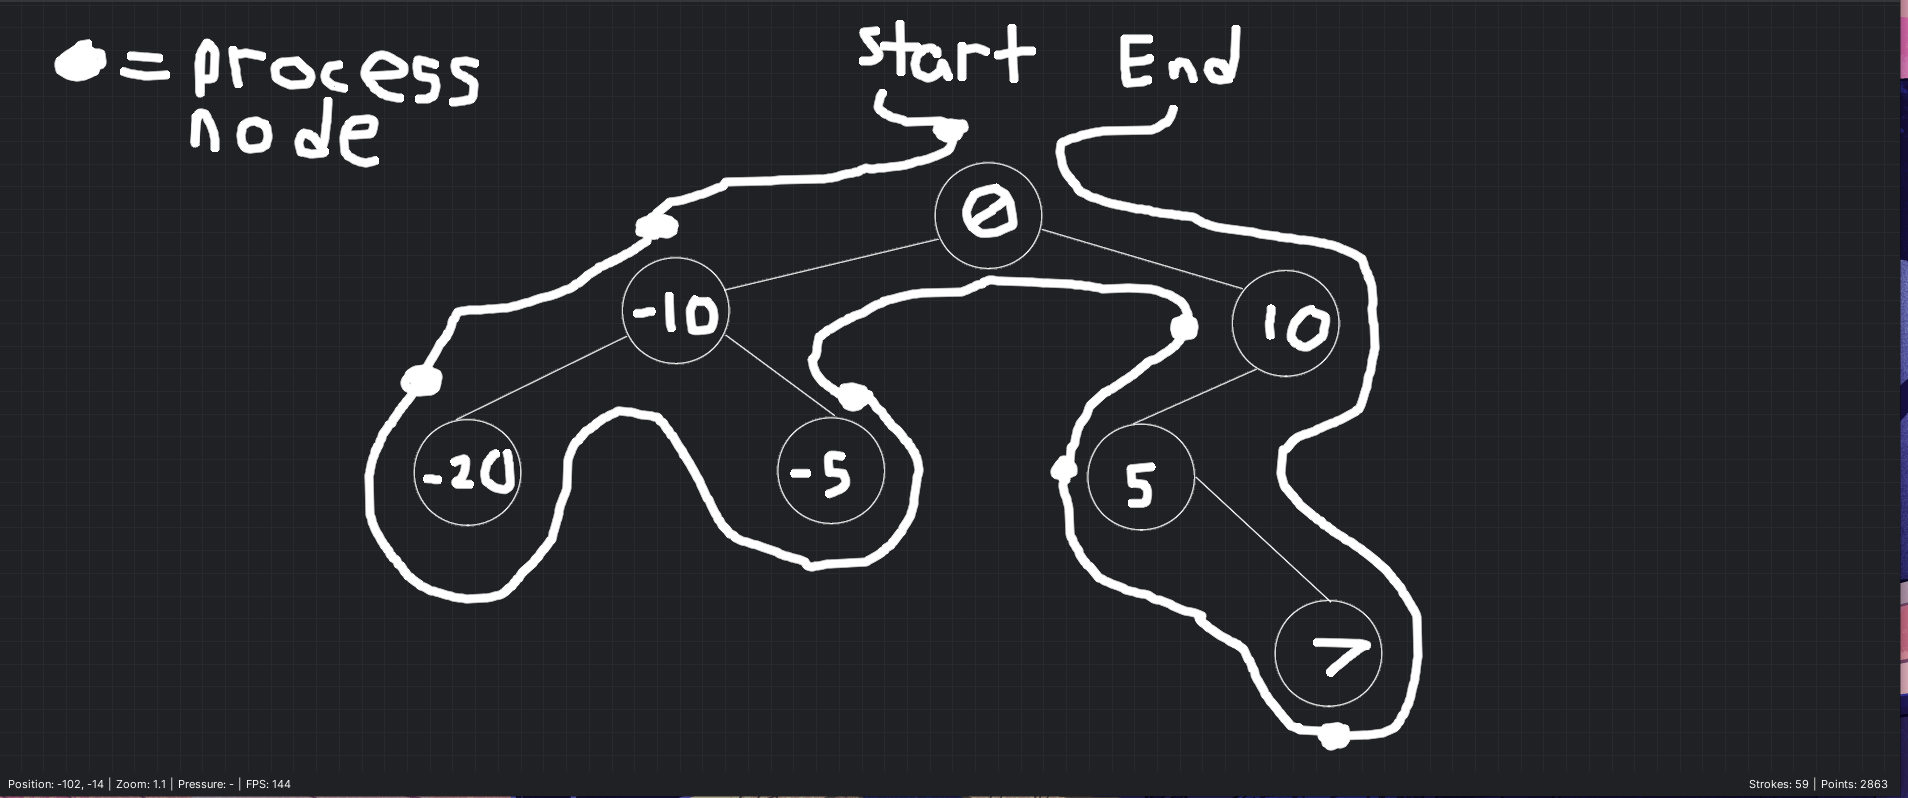 start End
= process
node
0
-10
10
-20
-5
5
7
Position: -102, -14 | Zoom: 1.1 | Pressure: - | FPS: 144
Strokes: 59 | Points: 2863